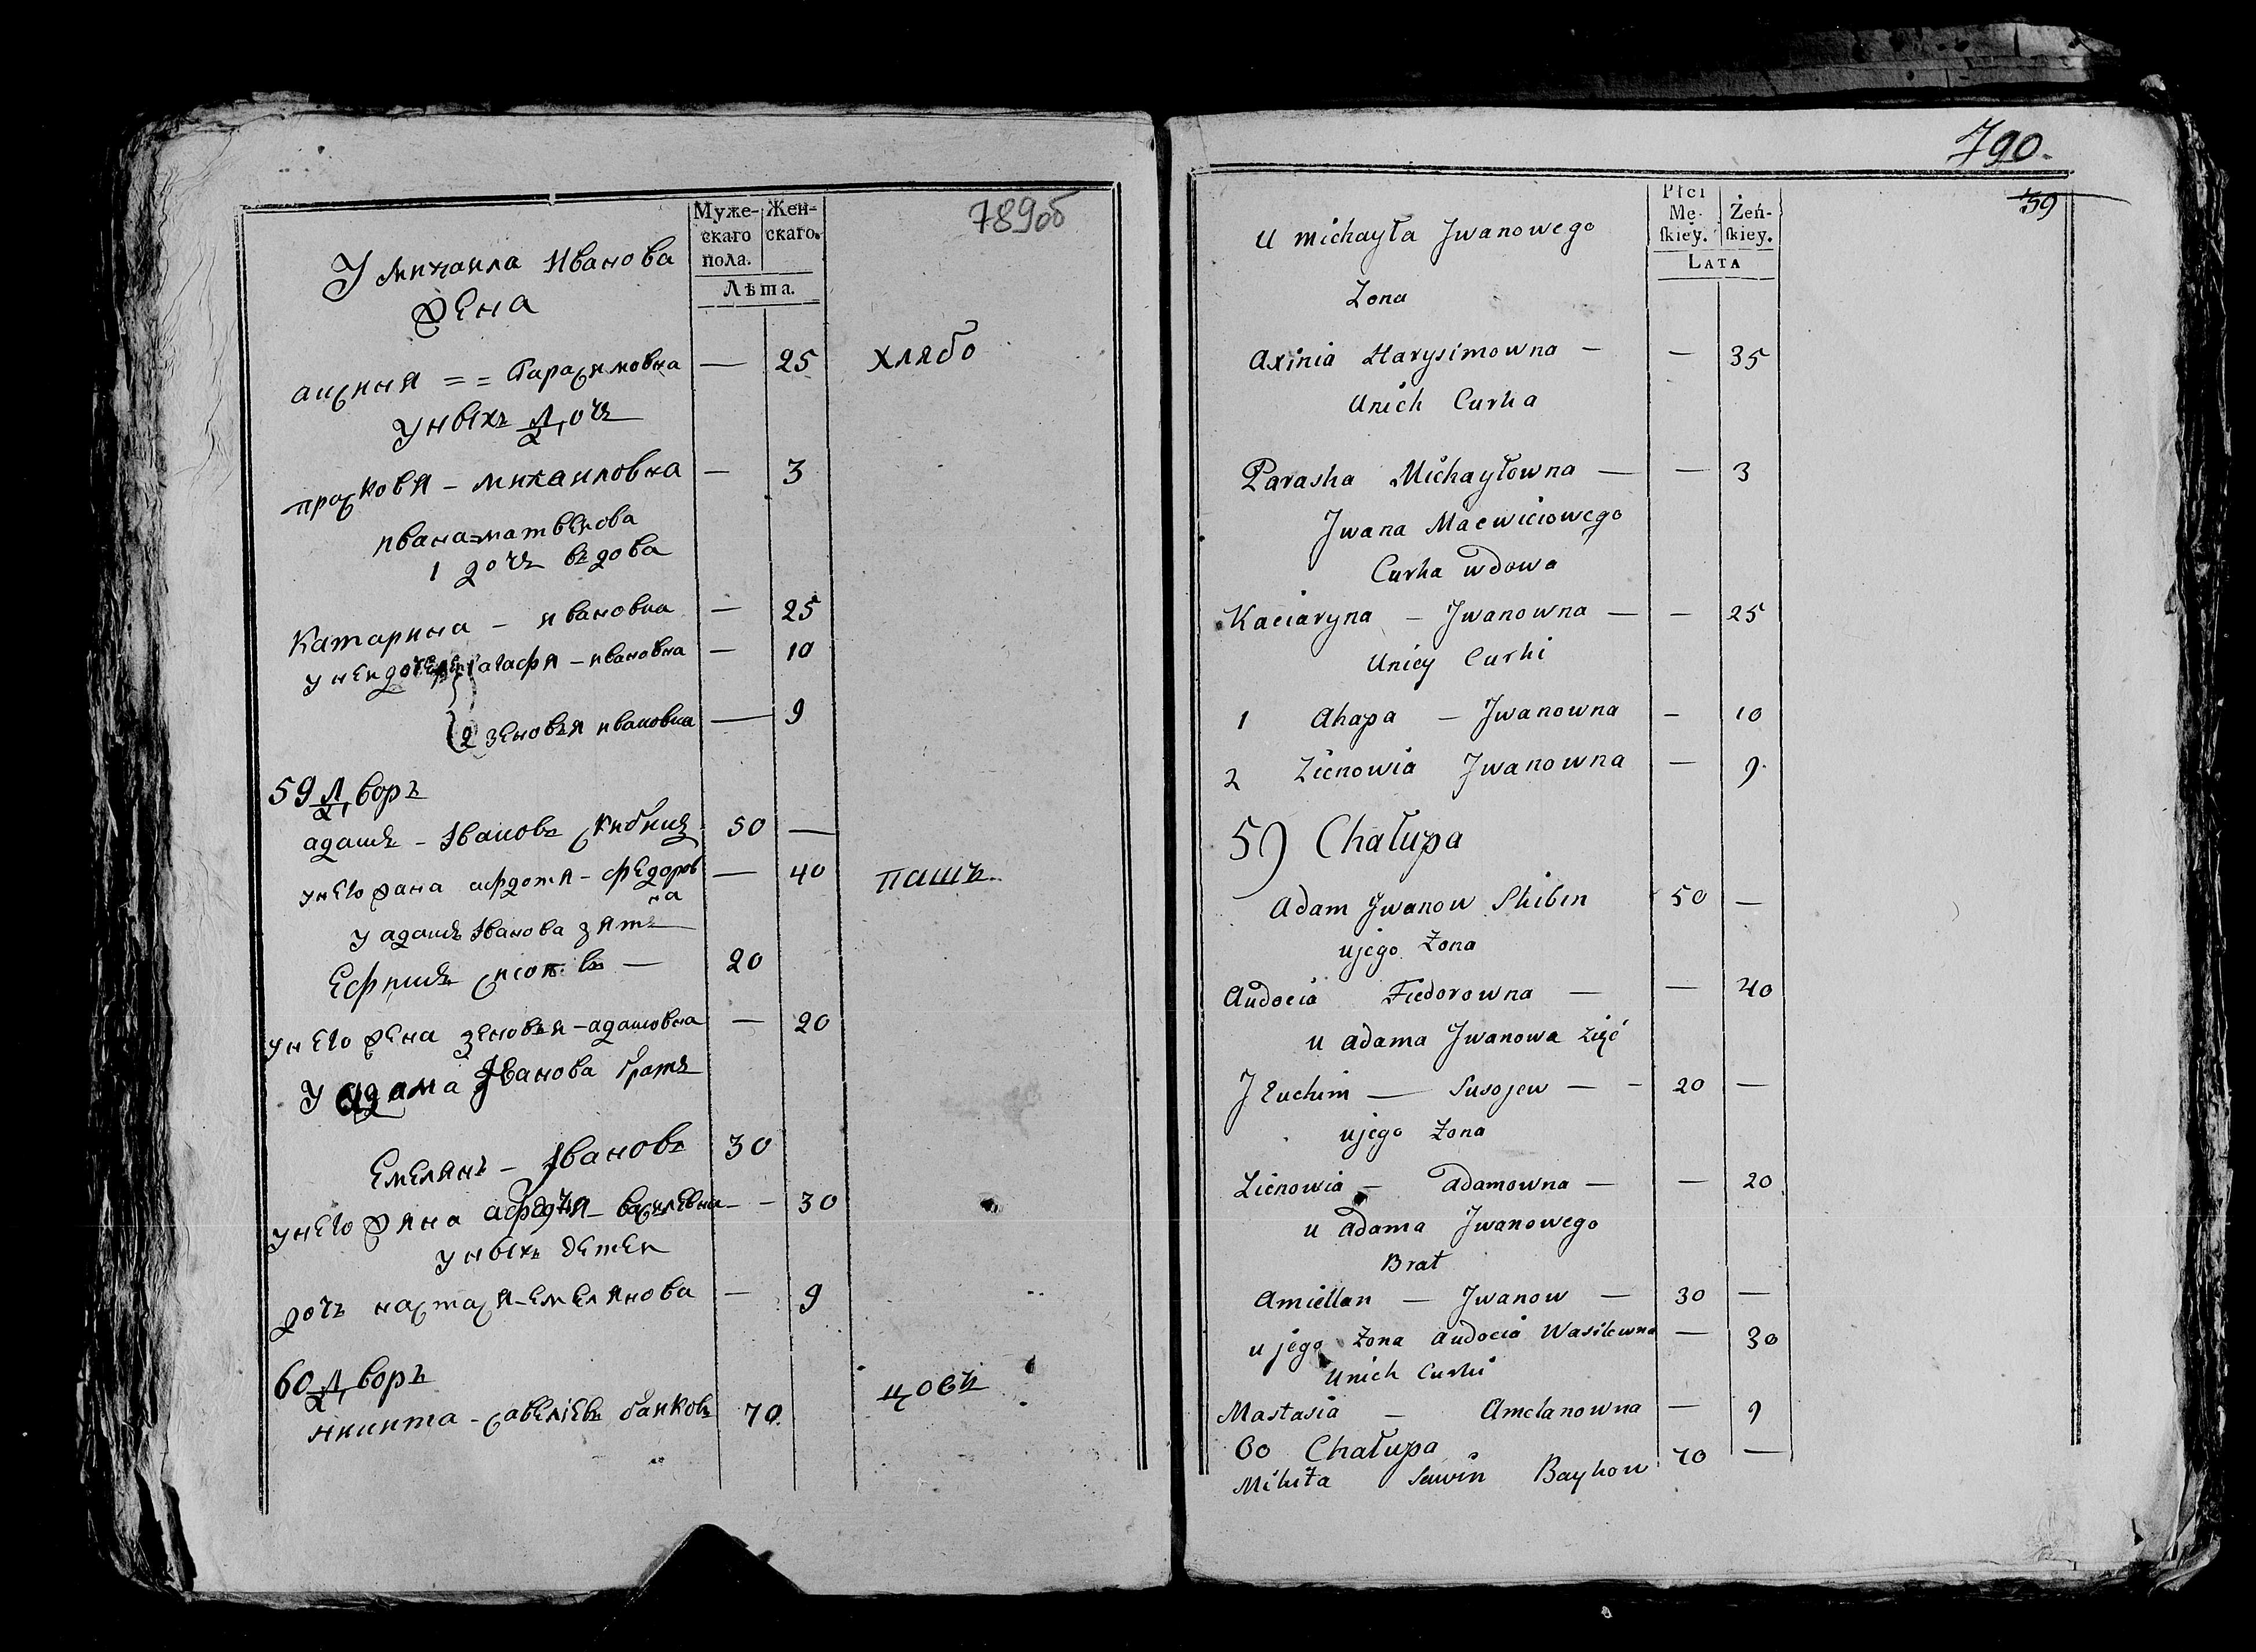 789об
Муже-
скаго
пола.
Жен-
скаго.
Лѣта.
У михаила Иванова
жена
аксиня = = Гарасимовна — 25 хлябо
у ныхъ дочъ
прасковя - михаиловна — 3
ивана матвеиова
1 дочъ въдова
Катарина - ивановна — 25
у неи дочереи 1 агафя - ивановна — 10
2 зеновъя ивановна — 9
59 Дворъ
адамъ - Iвановъ скибинъ 50 —
у него жана афдотя - федоров — 40 пашъ
на
у адамъ Iванова зятъ
Ефимъ — 20
у него жена зеновъя - адамовна — 20
У адама Iванова братъ
Емелянъ - Iвановъ 30
у него жана афдотя - васелевна - - 30
у ныхъ детеи
дочъ настася - емелянова — 9
60 Дворъ
никита - савелiевъ баиковъ 70 цовъ
790.
59
Płci
Mę-
ſkiey.
Żeń-
ſkiey.
LATA
U Michayła Jwanowego
Zona
Axinia Harysimowna — — 35
Unich Curka
Paraska Michayłowna — — 3
Jwana Macwieiowego
Curka wdowa
Kaciaryna - Jwanowna — — 25
Uniey Curki
1 Ahapa - Jwanowna - 10
2 Zienowia Jwanowna — 9
59 Chałupa
Adam Jwanow Skibin 50 —
ujego Żona
Audocia Fiedorowna — — 40
u Adama Jwanowa Zięć
Juchim — Susojew — - 20 —
ujego Żona
Zienowia - Adamowna — — 20
u Adama Jwanowego
Brat
Amiellan — Jwanow — 30 —
u jego Żona Audocia Wasilewna — 30
Unich Curki
Nastasia - Amelanowna — 9
60 Chałupa
Mikita Sawin Baykow 70 —